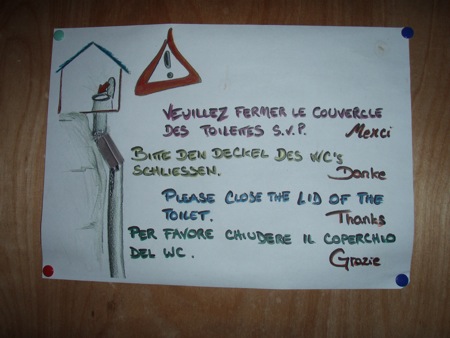 VEUILLEZ FERMER LE COUVERCLE
DES TOILETTES S.V.P. Merci
BITTE DEN DECKEL DES WC'S
SCHLIESSEN. Danke
PLEASE CLOSE THE LID OF THE
TOILET. Thanks
PER FAVORE CHIUDERE IL COPERCHIO
DEL WC. Grazie